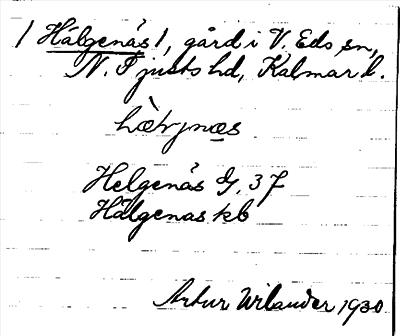 / Hälgenäs /, gård i V. Eds sn,
N. Tjusts hd, Kalmar l.
Helgenäs G. 37
Hälgenas kb
Artur Wilander 1930